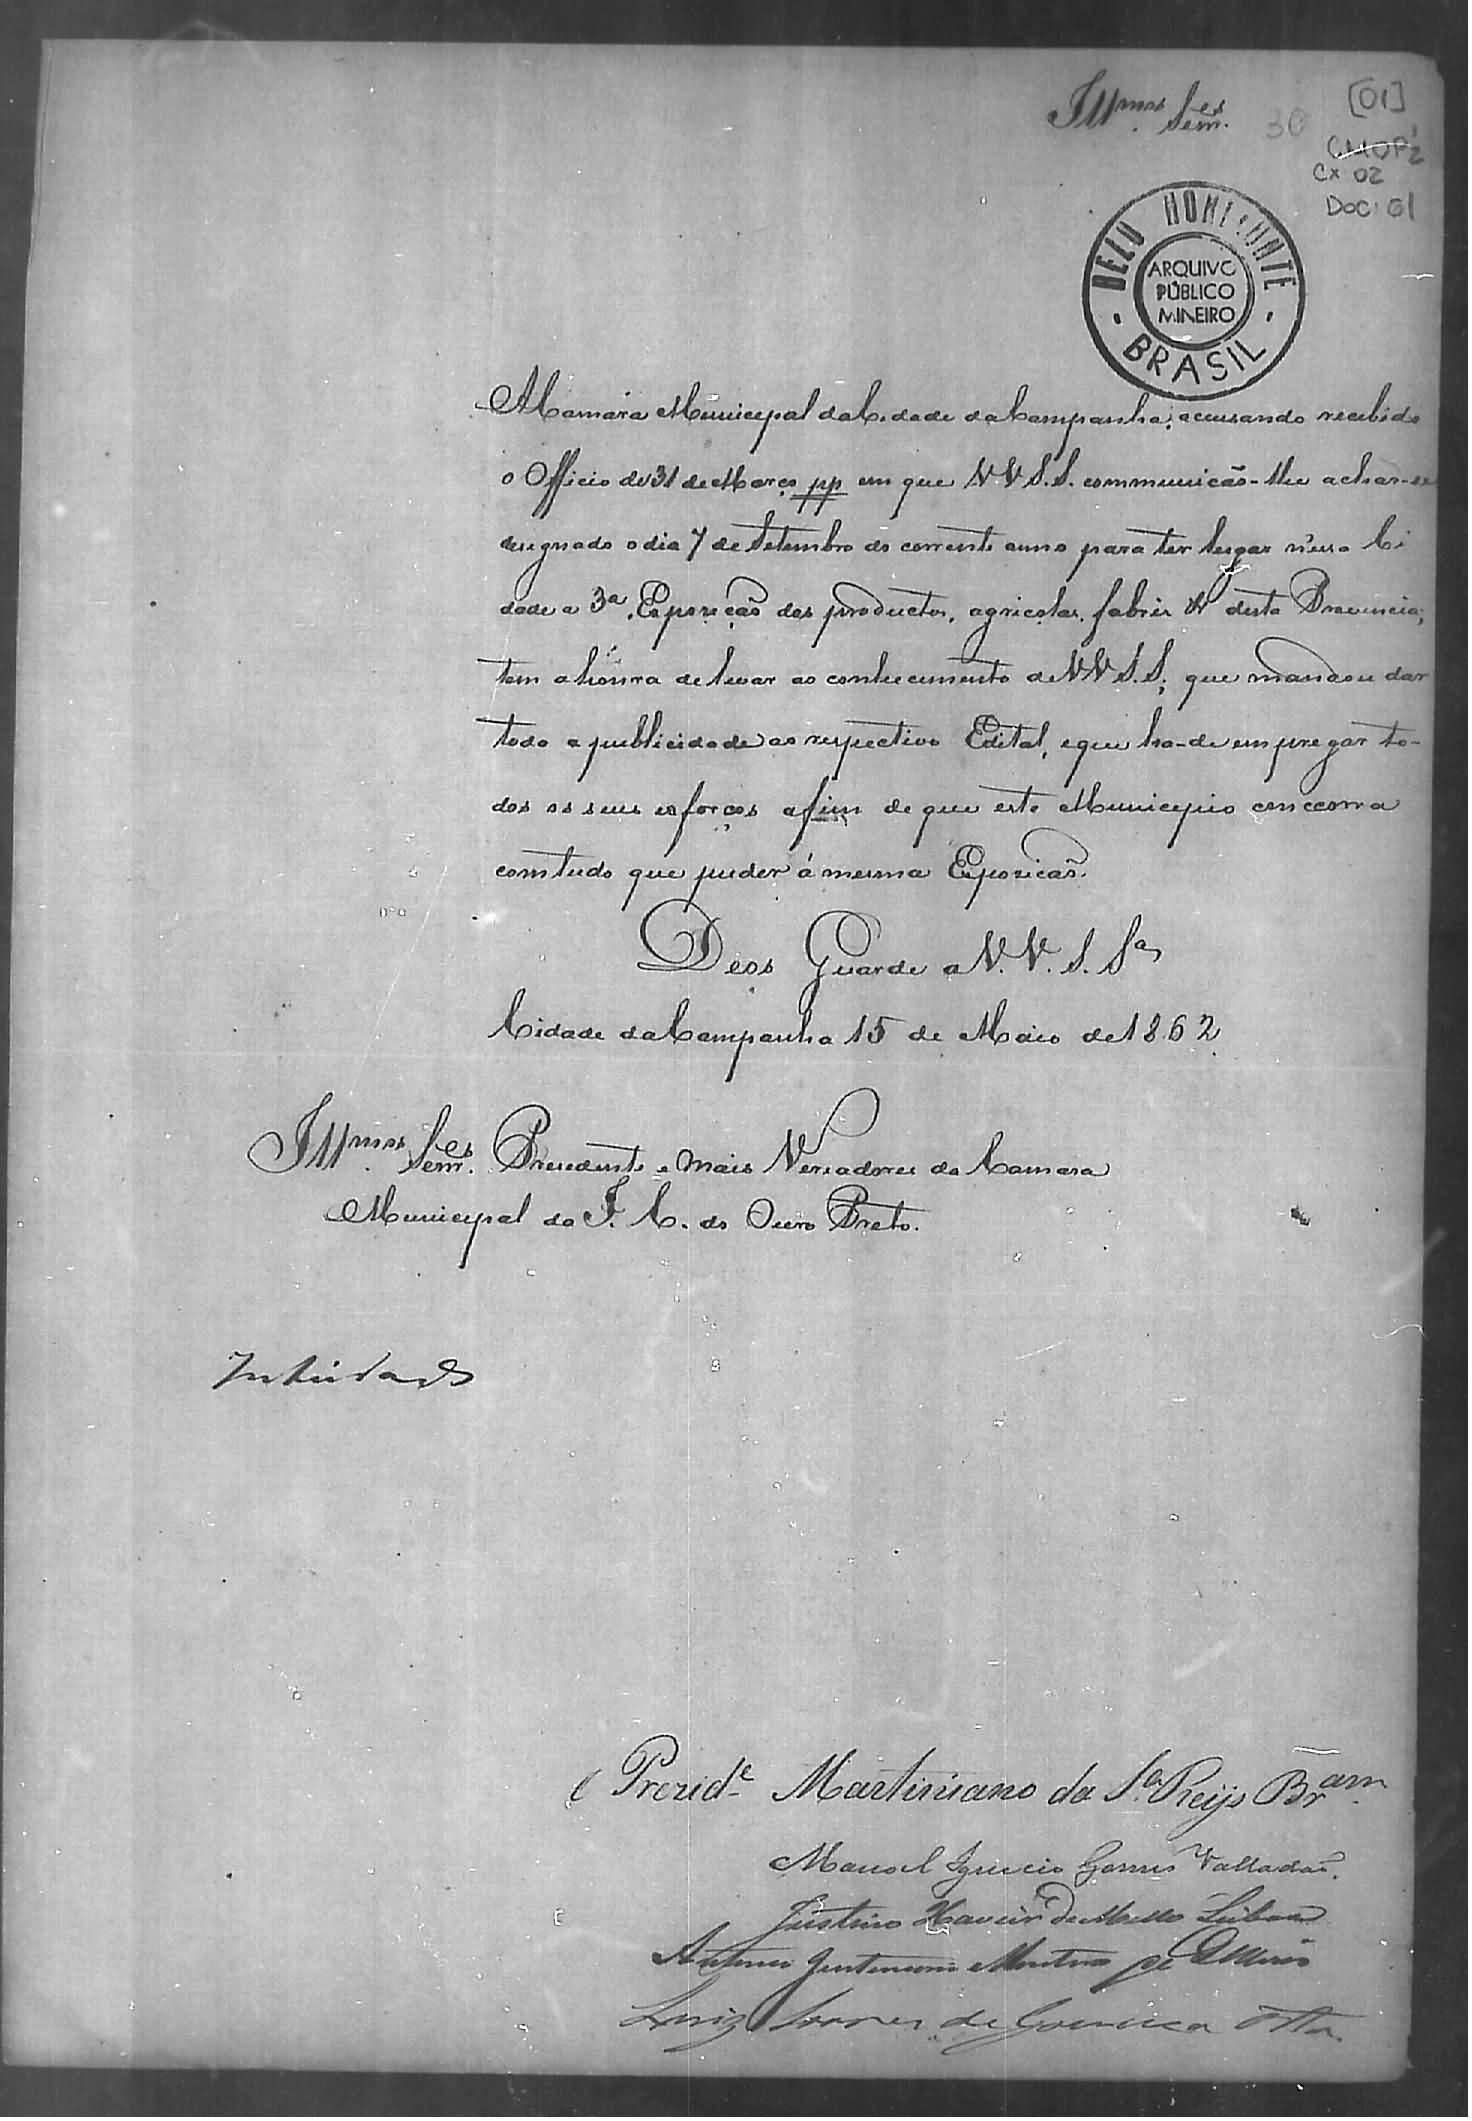 Illmos Senres.
30
[01]
CMOP2
Cx 02
Doc: 01
BELO HORIZONTE
ARQUIVO
PÚBLICO
MINEIRO
BRASIL
A Camara Municipal da Cidade da Campanha, accusando recebido
o Officio de 31 de Março pp em que V.V.S.S. communicão-lhe achar-se
designado o dia 7 de Setembro do corrente anno para ter lugar n'essa Ci
dade a 3a. Exposição dos productos, agricolas, fabris & desta Provincia;
tem a honra de levar ao conhecimento de VV S.S; que mandou dar
toda a publicidade ao respectivo Edital, e que ha-de empregar to-
dos os seus esforços afim de que este Municipio conccorra
com tudo que puder á mesma Exposição.
Deos Guarde a V.V.S.Sas
Cidade da Campanha 15 de Maio de 1862
Illmos Senres. Presidente e mais Vereadores da Camara
Municipal da I. C. do Ouro Preto.
Inteirada
O Prezide. Martiniano da Sa. Reijs Bram.
Manoel Ignacio Gomes Valladão.
Justino Xavier de Mello Lisboa
Antonio Monteiro de
Luiz Soares de Gouveia